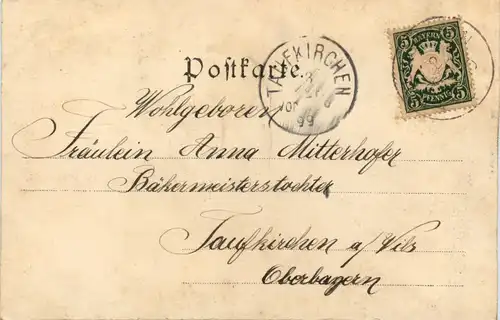 BAYERN
5 5
PFENNIG
5 5
TAUFKIRCHEN
99
Postkarte.
Wohlgeboren
Fräulein Anna Mitterhofer
Bäkermeisterstochter
Taufkirchen a/Vils
Oberbayern